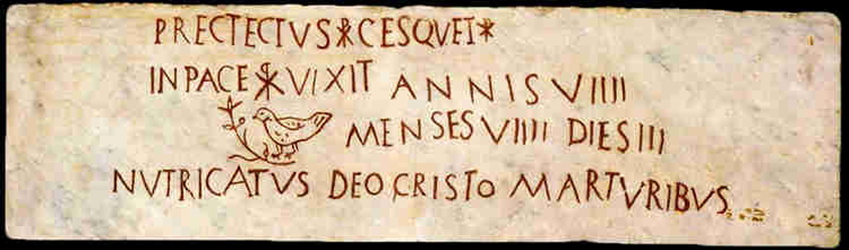 PRECTECTVS ☧ CESQVET ☧
IN PACE ☧ VIXIT ANNIS VIIII
MENSES VIIII DIES III
NVTRICATVS DEO CRISTO MARTVRIBVS